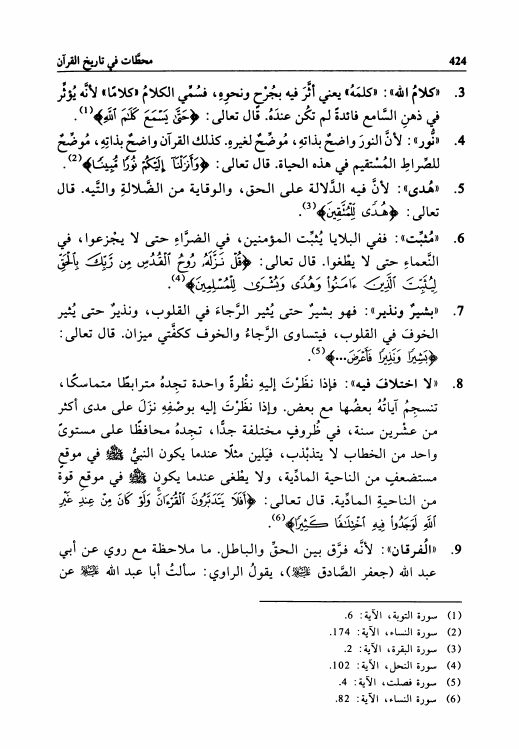 424
محطَّات في تاريخ القرآن
3. «كلامُ الله»: «كلمَهُ» يعني أثَّرَ فيه بجُرْحٍ ونحوِهِ، فسُمِّي الكلامُ «كلامًا» لأنَّه يُؤثِّر
في ذهنِ السَّامع فائدةً لم تكُن عندَهُ. قال تعالى: ﴿حَتَّىٰ يَسْمَعَ كَلَٰمَ ٱللَّهِ﴾(1).
4. «نُور»: لأنَّ النورَ واضحٌ بذاتِهِ، مُوضِّحٌ لغيرِهِ. كذلك القرآن واضحٌ بذاتِهِ، مُوضِّحٌ
للصِّراطِ المُستَقيم في هذه الحياة. قال تعالى: ﴿وَأَنزَلْنَآ إِلَيْكُمْ نُورًا مُّبِينًا﴾(2).
5. «هُدى»: لأنَّ فيه الدَّلالة على الحق، والوقاية من الضَّلالةِ والتِّيه. قال
تعالى: ﴿هُدًى لِّلْمُتَّقِينَ﴾(3).
6. «مُثبِّت»: ففي البلايا يُثبِّت المؤمنين، في الضرَّاءِ حتى لا يجْزعوا، في
النَّعماءِ حتى لا يطْغوا. قال تعالى: ﴿قُلْ نَزَّلَهُۥ رُوحُ ٱلْقُدُسِ مِن رَّبِّكَ بِٱلْحَقِّ
لِيُثَبِّتَ ٱلَّذِينَ ءَامَنُوا۟ وَهُدًى وَبُشْرَىٰ لِلْمُسْلِمِينَ﴾(4).
7. «بشيرٌ ونذير»: فهو بشيرٌ حتى يُثير الرَّجاءَ في القلوب، ونذيرٌ حتى يُثير
الخوفَ في القلوب، فيتساوى الرَّجاءُ والخوف ككفَّتي ميزان. قال تعالى:
﴿بَشِيرًا وَنَذِيرًا فَأَعْرَضَ...﴾(5).
8. «لا اختلافَ فيه»: فإذا نظَرْتَ إليهِ نظْرةً واحدة تجدِهُ مترابطًا متماسكًا،
تنسجِمُ آياتُهُ بعضُها مع بعض. وإذا نظَرْتَ إليه بوصْفِهِ نزَلَ على مدى أكثر
من عشرين سنة، في ظُروفٍ مختلفة جدًّا، تجدُه محافظًا على مستوىً
واحد من الخطاب لا يتذبْذب، فيَلين مثلًا عندما يكون النبيُّ ﷺ في موقعٍ
مستضعَفٍ من الناحية المادِّية، ولا يطْغى عندما يكون ﷺ في موقعِ قوة
من الناحيةِ المادِّية. قال تعالى: ﴿أَفَلَا يَتَدَبَّرُونَ ٱلْقُرْءَانَ ۚ وَلَوْ كَانَ مِنْ عِندِ غَيْرِ
ٱللَّهِ لَوَجَدُوا۟ فِيهِ ٱخْتِلَٰفًا كَثِيرًا﴾(6).
9. «الفرقان»: لأنَّه فرَّق بين الحقِّ والباطل. ما ملاحظة مع روي عن أبي
عبد الله (جعفر الصَّادق ﷺ)، يقولُ الراوي: سألتُ أبا عبد الله ﷺ عن
(1) سورة التوبة، الآية: 6.
(2) سورة النساء، الآية: 174.
(3) سورة البقرة، الآية: 2.
(4) سورة النحل، الآية: 102.
(5) سورة فصلت، الآية: 4.
(6) سورة النساء، الآية: 82.